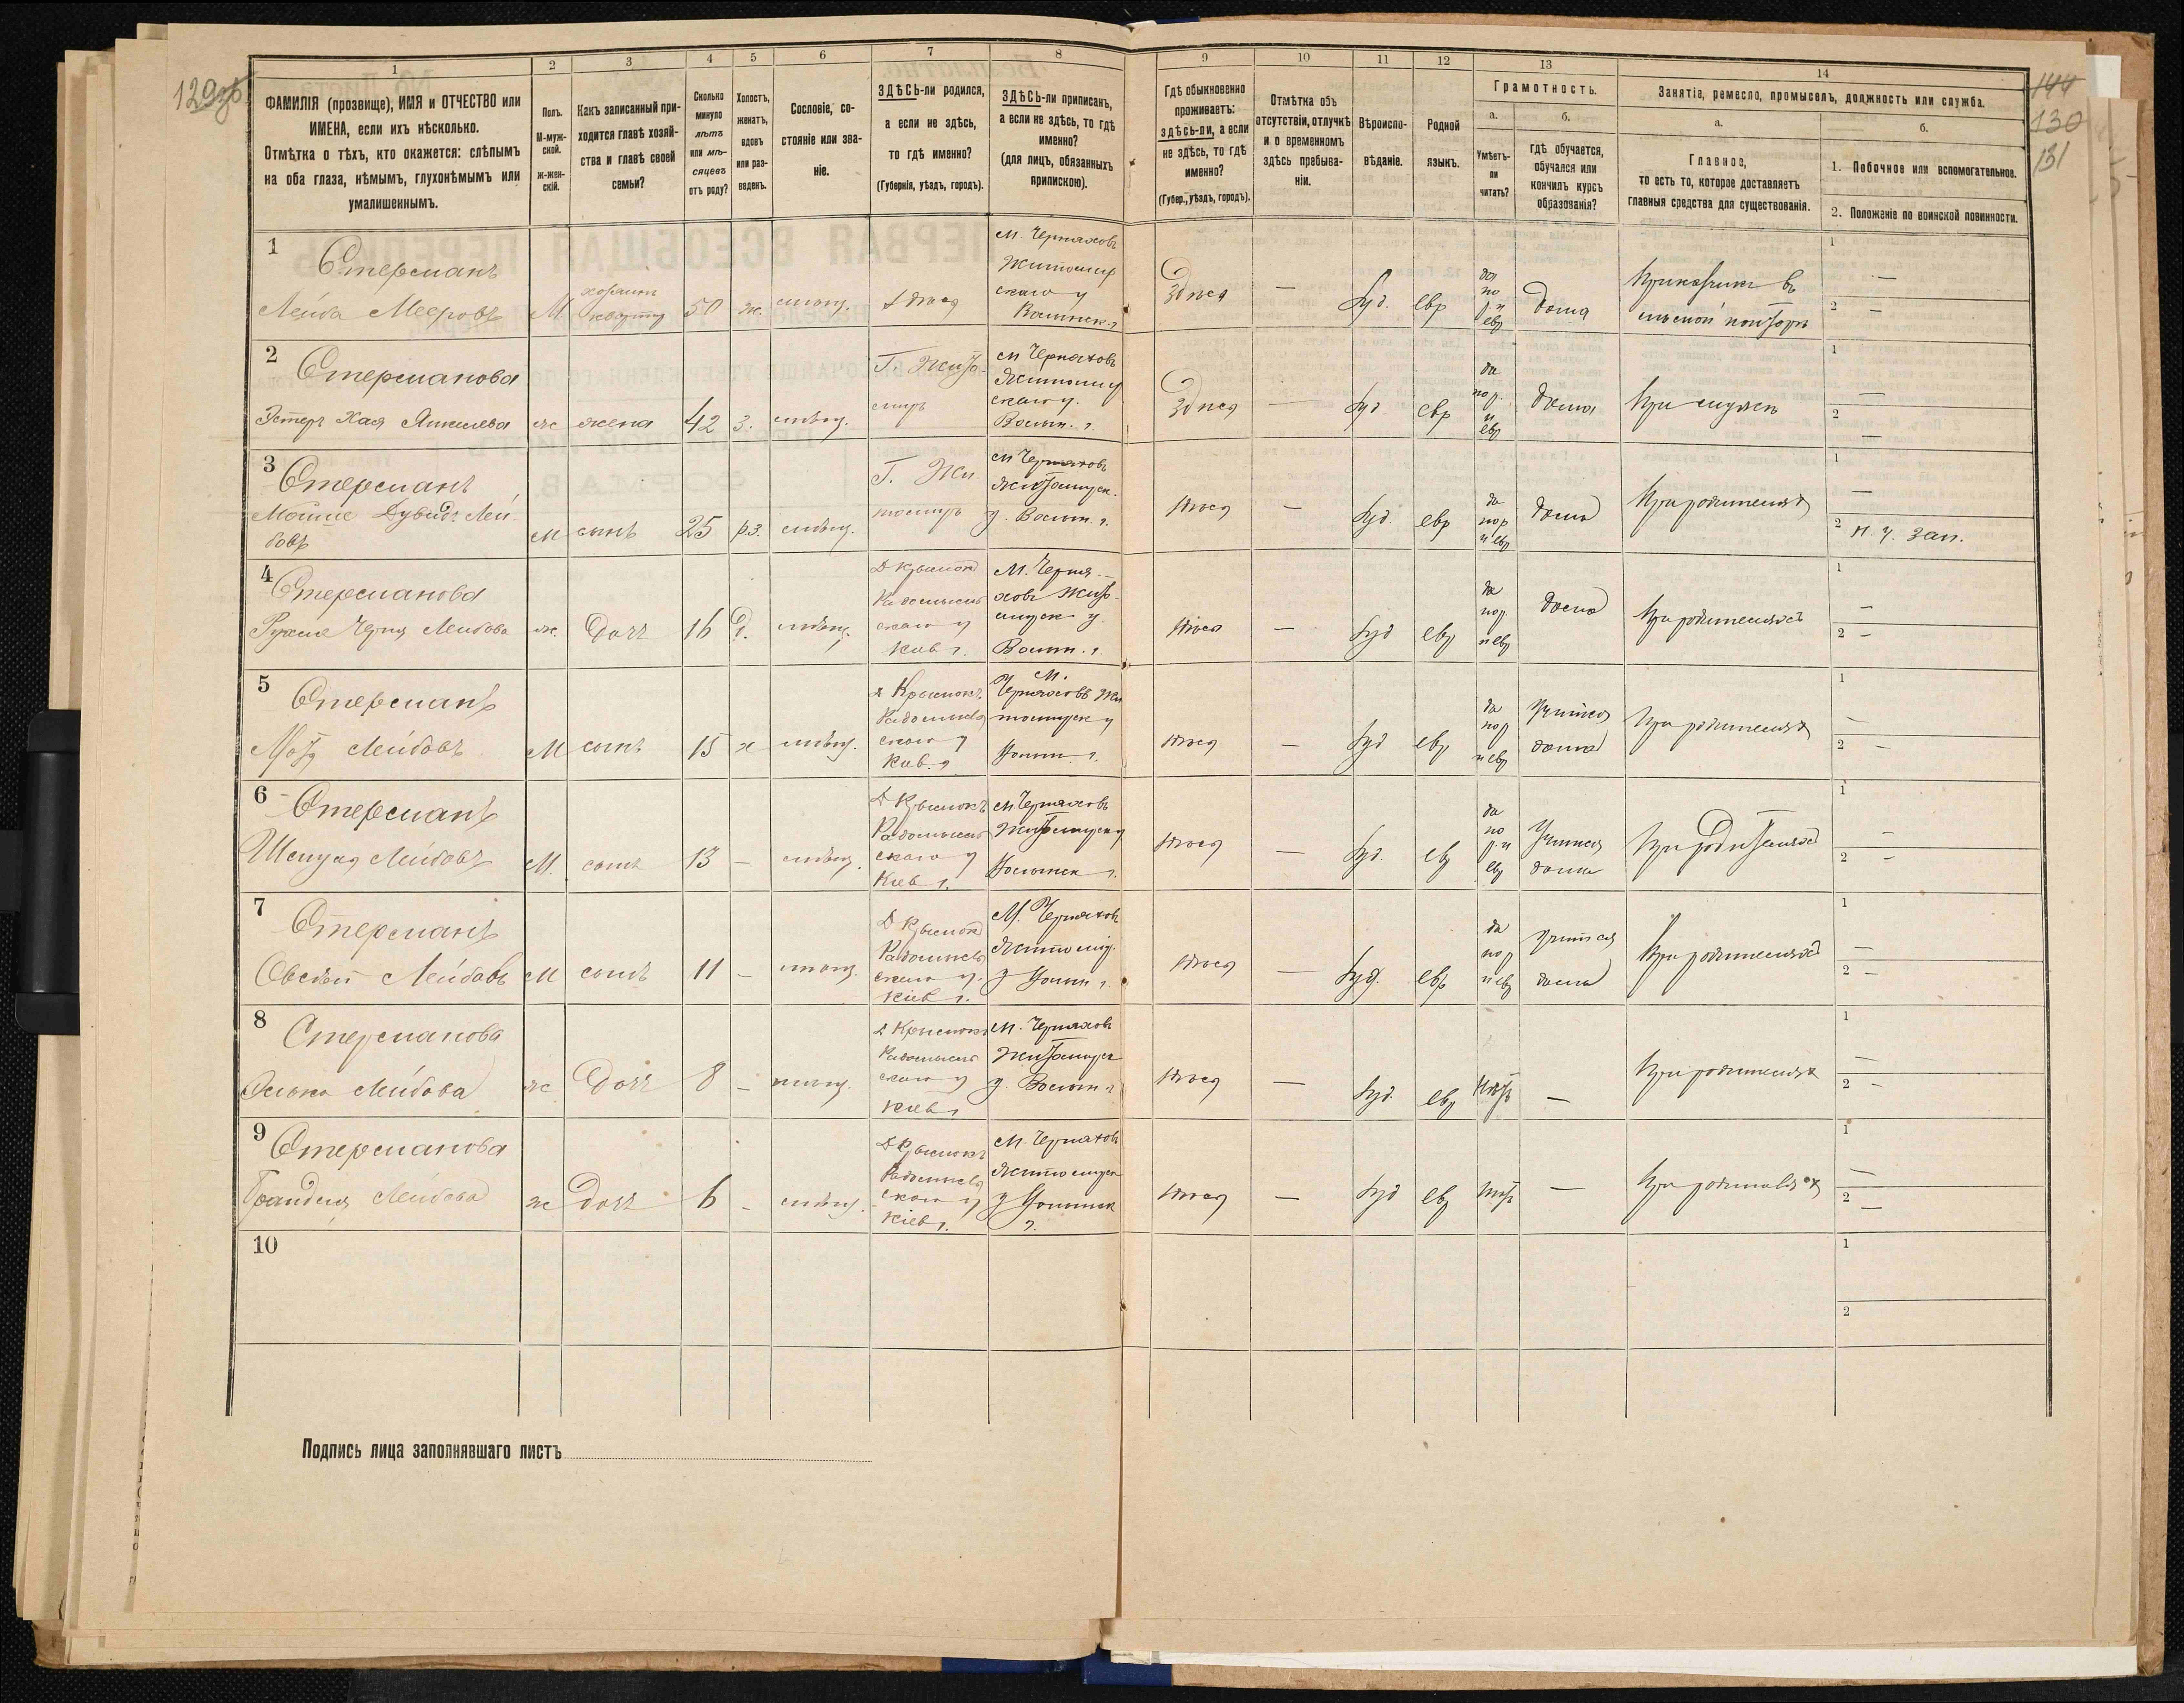 129об
144
130
131
1
2
3
4
5
6
7
8
9
10
11
12
13
14
ФАМИЛІЯ (прозвище), ИМЯ и ОТЧЕСТВО или
ИМЕНА, если ихъ нѣсколько.
Отмѣтка о тѣхъ, кто окажется: слѣпымъ
на оба глаза, нѣмымъ, глухонѣмымъ или
умалишеннымъ.
Полъ.
М-муж-
ской.
ж-жен-
скій.
Какъ записанный при-
ходится главѣ хозяй-
ства и главѣ своей
семьи?
Сколько
минуло
лѣтъ
или мѣ-
сяцевъ
отъ роду?
Холостъ,
женатъ,
вдовъ
или раз-
веденъ.
Сословіе, со-
стояніе или зва-
ніе.
ЗДѢСЬ-ли родился,
а если не здѣсь,
то гдѣ именно?
(Губернія, уѣздъ, городъ).
ЗДѢСЬ-ли приписанъ,
а если не здѣсь, то гдѣ
именно?
(для лицъ, обязанныхъ
припискою).
Гдѣ обыкновенно
проживаетъ:
здѣсь-ли, а если
не здѣсь, то гдѣ
именно?
(Губер., уѣздъ, городъ).
Отмѣтка объ
отсутствіи, отлучкѣ
и о временномъ
здѣсь пребыва-
ніи.
Вѣроиспо-
вѣданіе.
Родной
языкъ.
Грамотность.
а.
Умѣетъ-
ли
читать?
б.
Гдѣ обучается,
обучался или
кончилъ курсъ
образованія?
Занятіе, ремесло, промыселъ, должность или служба.
а.
Главное,
то есть то, которое доставляетъ
главныя средства для существованія.
б.
1. Побочное или вспомогательное.
2. Положеніе по воинской повинности.
1
Стерманъ
Лейба Мееровъ
М.
хозяинъ
кварт
50
ж.
мѣщ.
здѣсь
м. Черняховъ
Житомир
скаго у
Волынск. г.
Здѣсь
—
Іуд.
евр
да
по
р. и
евр
дома
Приказчикъ въ
лѣсной конторѣ
1 —
2 —
2
Стерманова
Эстеръ Хая Янкелева
ж
жена
42
з.
мѣщ.
Г. Жито-
миръ
м Черняховъ
Житомир
скаго у.
Волын. г.
Здѣсь
—
Іуд.
евр
да
по р.
и
евр
дома
При мужѣ
1 —
2 —
3
Стерманъ
Мойше Дувидъ Лей-
бовъ
М
сынъ
25
рз.
мѣщ.
Г. Жи-
томиръ
м Черняховъ
Житомирск.
у. Волын. г.
здѣсь
—
Іуд.
евр
да
по р
и евр
дома
При родителяхъ
1 —
2 Н. ч. зап.
4
Стерманова
Рухля Черня Лейбова
ж.
дочь
16
д.
мѣщ.
Д Крымокъ
Радомысль
скаго у
Кіев г.
М. Черня-
ховъ Жито-
мирск у.
Волын. г.
здѣсь
—
Іуд
евр
да
по р.
и евр
дома
При родителяхъ
1 —
2 —
5
Стерманъ
Лейбовъ
М
сынъ
15
х
мѣщ.
д Крымокъ
Радомысль
скаго у
Кіев. г
М.
Черняховъ Жи
томирск у
Волын. г.
здѣсь
—
Іуд
евр
да
по р
и евр
Учится
дома
При родителяхъ
1 —
2 —
6
Стерманъ
Шмуль Лейбовъ
М.
сынъ
13
—
мѣщ.
Д Крымокъ
Радомысль
скаго у
Кіев г.
м Черняховъ
Житомирск у
Волынск г.
здѣсь
—
Іуд.
евр
да
по
р. и
евр
Учится
дома
При родителяхъ
1 —
2 —
7
Стерманъ
Овсѣй Лейбовъ
М
сынъ
11
—
мѣщ.
Д Крымокъ
Радомысль
скаго у.
Кіев г.
М. Черняховъ
Житомир.
у Волын г.
здѣсь
—
Іуд.
евр
да
по р
и евр
Учится
дома
При родителяхъ
1 —
2 —
8
Стерманова
Лейбова
ж
дочь
8
—
мѣщ.
д Крымокъ
Радомысль
скаго у
Кіев г
М. Черняховъ
Житомирск
у. Волын г
здѣсь
—
Іуд.
евр
Нѣтъ
—
При родителяхъ
1 —
2 —
9
Стерманова
Брандля Лейбова
ж
дочь
6
—
мѣщ.
Д Крымокъ
Радомысль
скаго у
Кіев г.
М. Черняховъ
Житомирск
у Волынск
г.
здѣсь
—
Іуд
евр
нѣтъ
—
При родителяхъ
1 —
2 —
10
1
2
Подпись лица заполнявшаго листъ